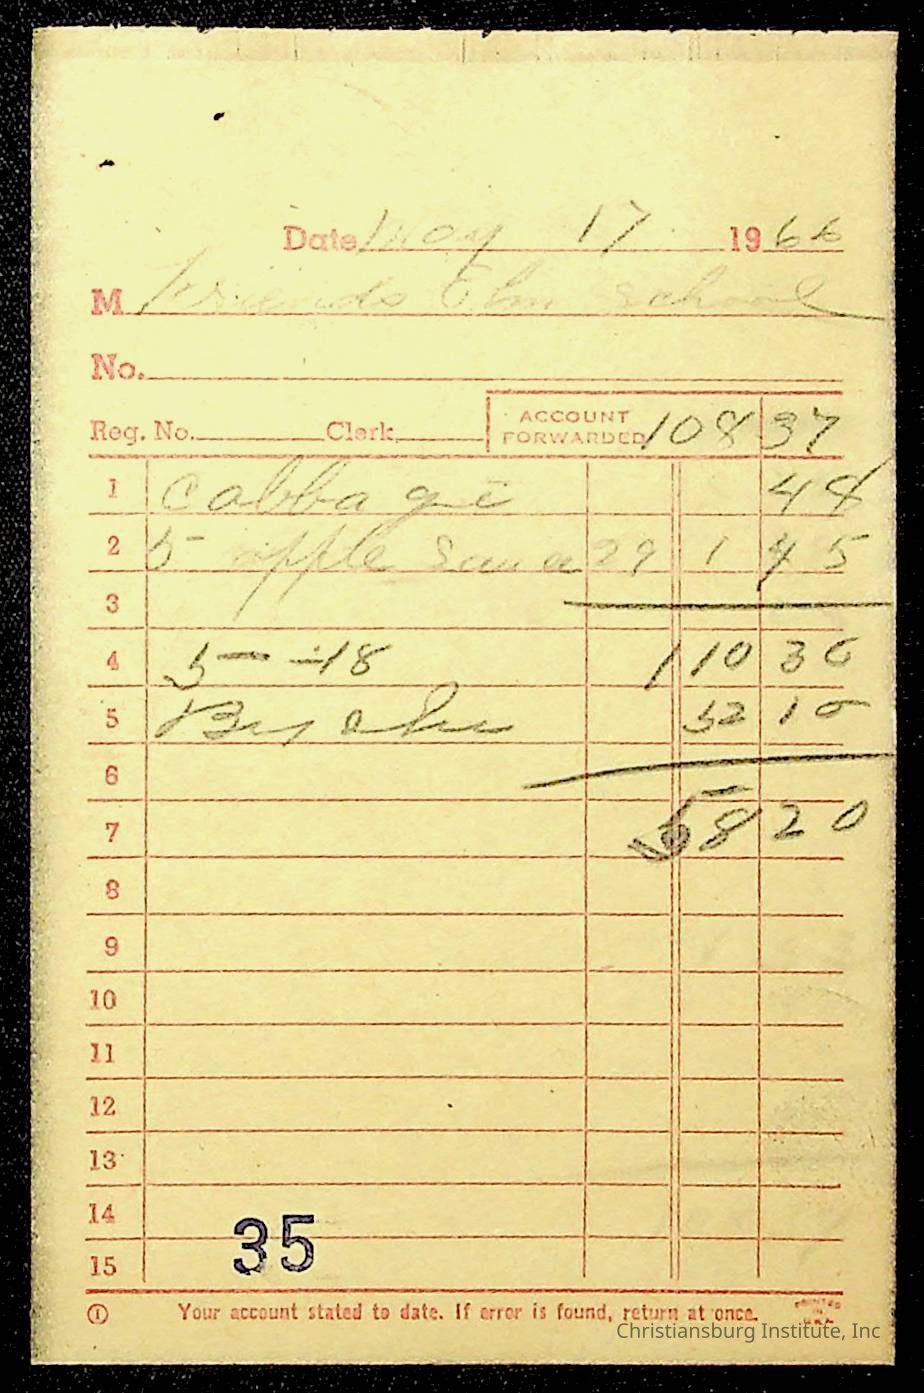 Date May 17 1966
M Friends Elm School
No.
Reg. No. Clerk ACCOUNT FORWARDED 108 37
1 Cabbage 48
2 5 apple Sauce 29 1 45
3
4 5--18 110 30
5 By Ch 52 10
6
7 58 20
8
9
10
11
12
13
14
15
35
Your account stated to date. If error is found, return at once.
PRINTED IN U.S.A.
Christiansburg Institute, Inc